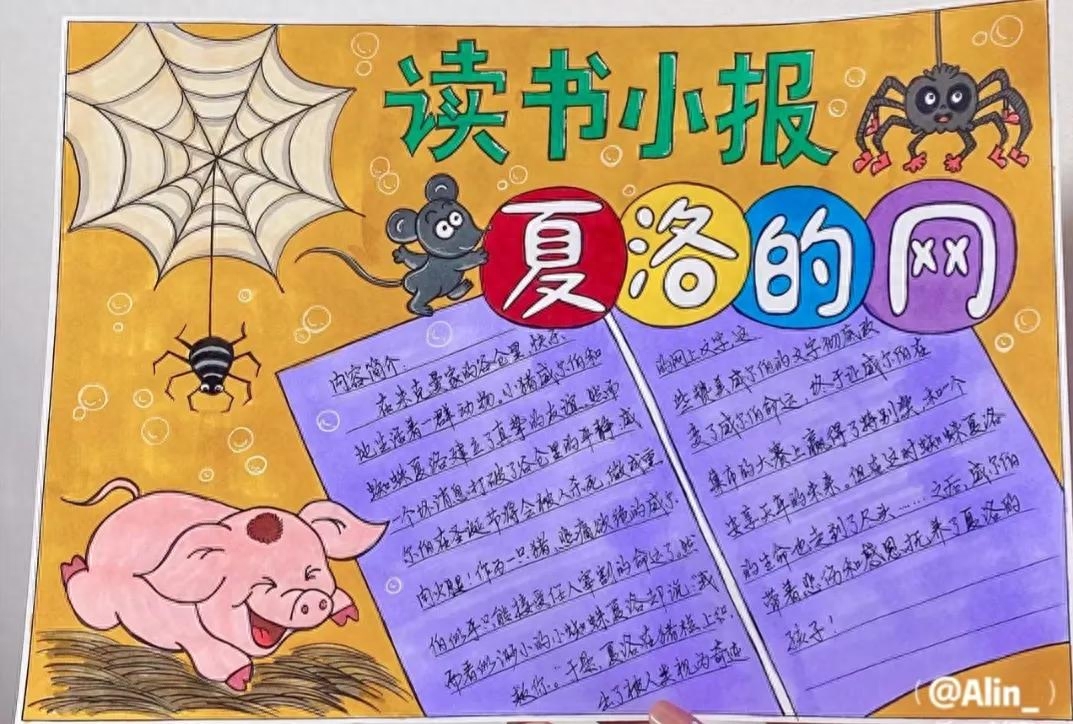 读书小报
夏洛的网
内容简介：
在朱克曼家的谷仓里，快乐
地生活着一群动物，小猪威尔伯和
蜘蛛夏洛建立了真挚的友谊。然而
一个坏消息打破了谷仓里的平静：威
尔伯在圣诞节将会被人杀死，做成熏
肉火腿！作为一只猪，悲痛欲绝的威尔
伯似乎只能接受任人宰割的命运了，然
而看似渺小的小蜘蛛夏洛却说：“我
救你。”于是，夏洛在猪栏上织
出了被人类视为奇迹
的网上文字，这
些赞美威尔伯的文字彻底改
变了威尔伯命运，终于让威尔伯在
集市的大赛上赢得了特别奖，和一个
安享天年的未来。但在这时蜘蛛夏洛
的生命也走到了尽头……之后，威尔伯
带着悲伤和感恩抚养了夏洛的
孩子！
(@Alin_ )